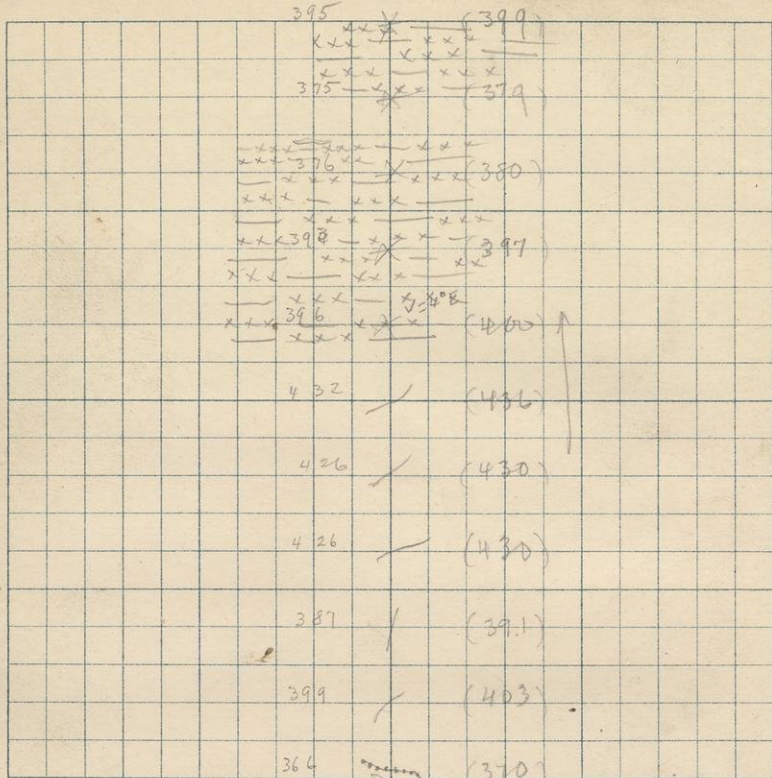 395 (399)
375 (379)
376 (380)
393 (397)
396 (400)
432 (436)
426 (430)
426 (430)
387 (391)
399 (403)
366 (370)